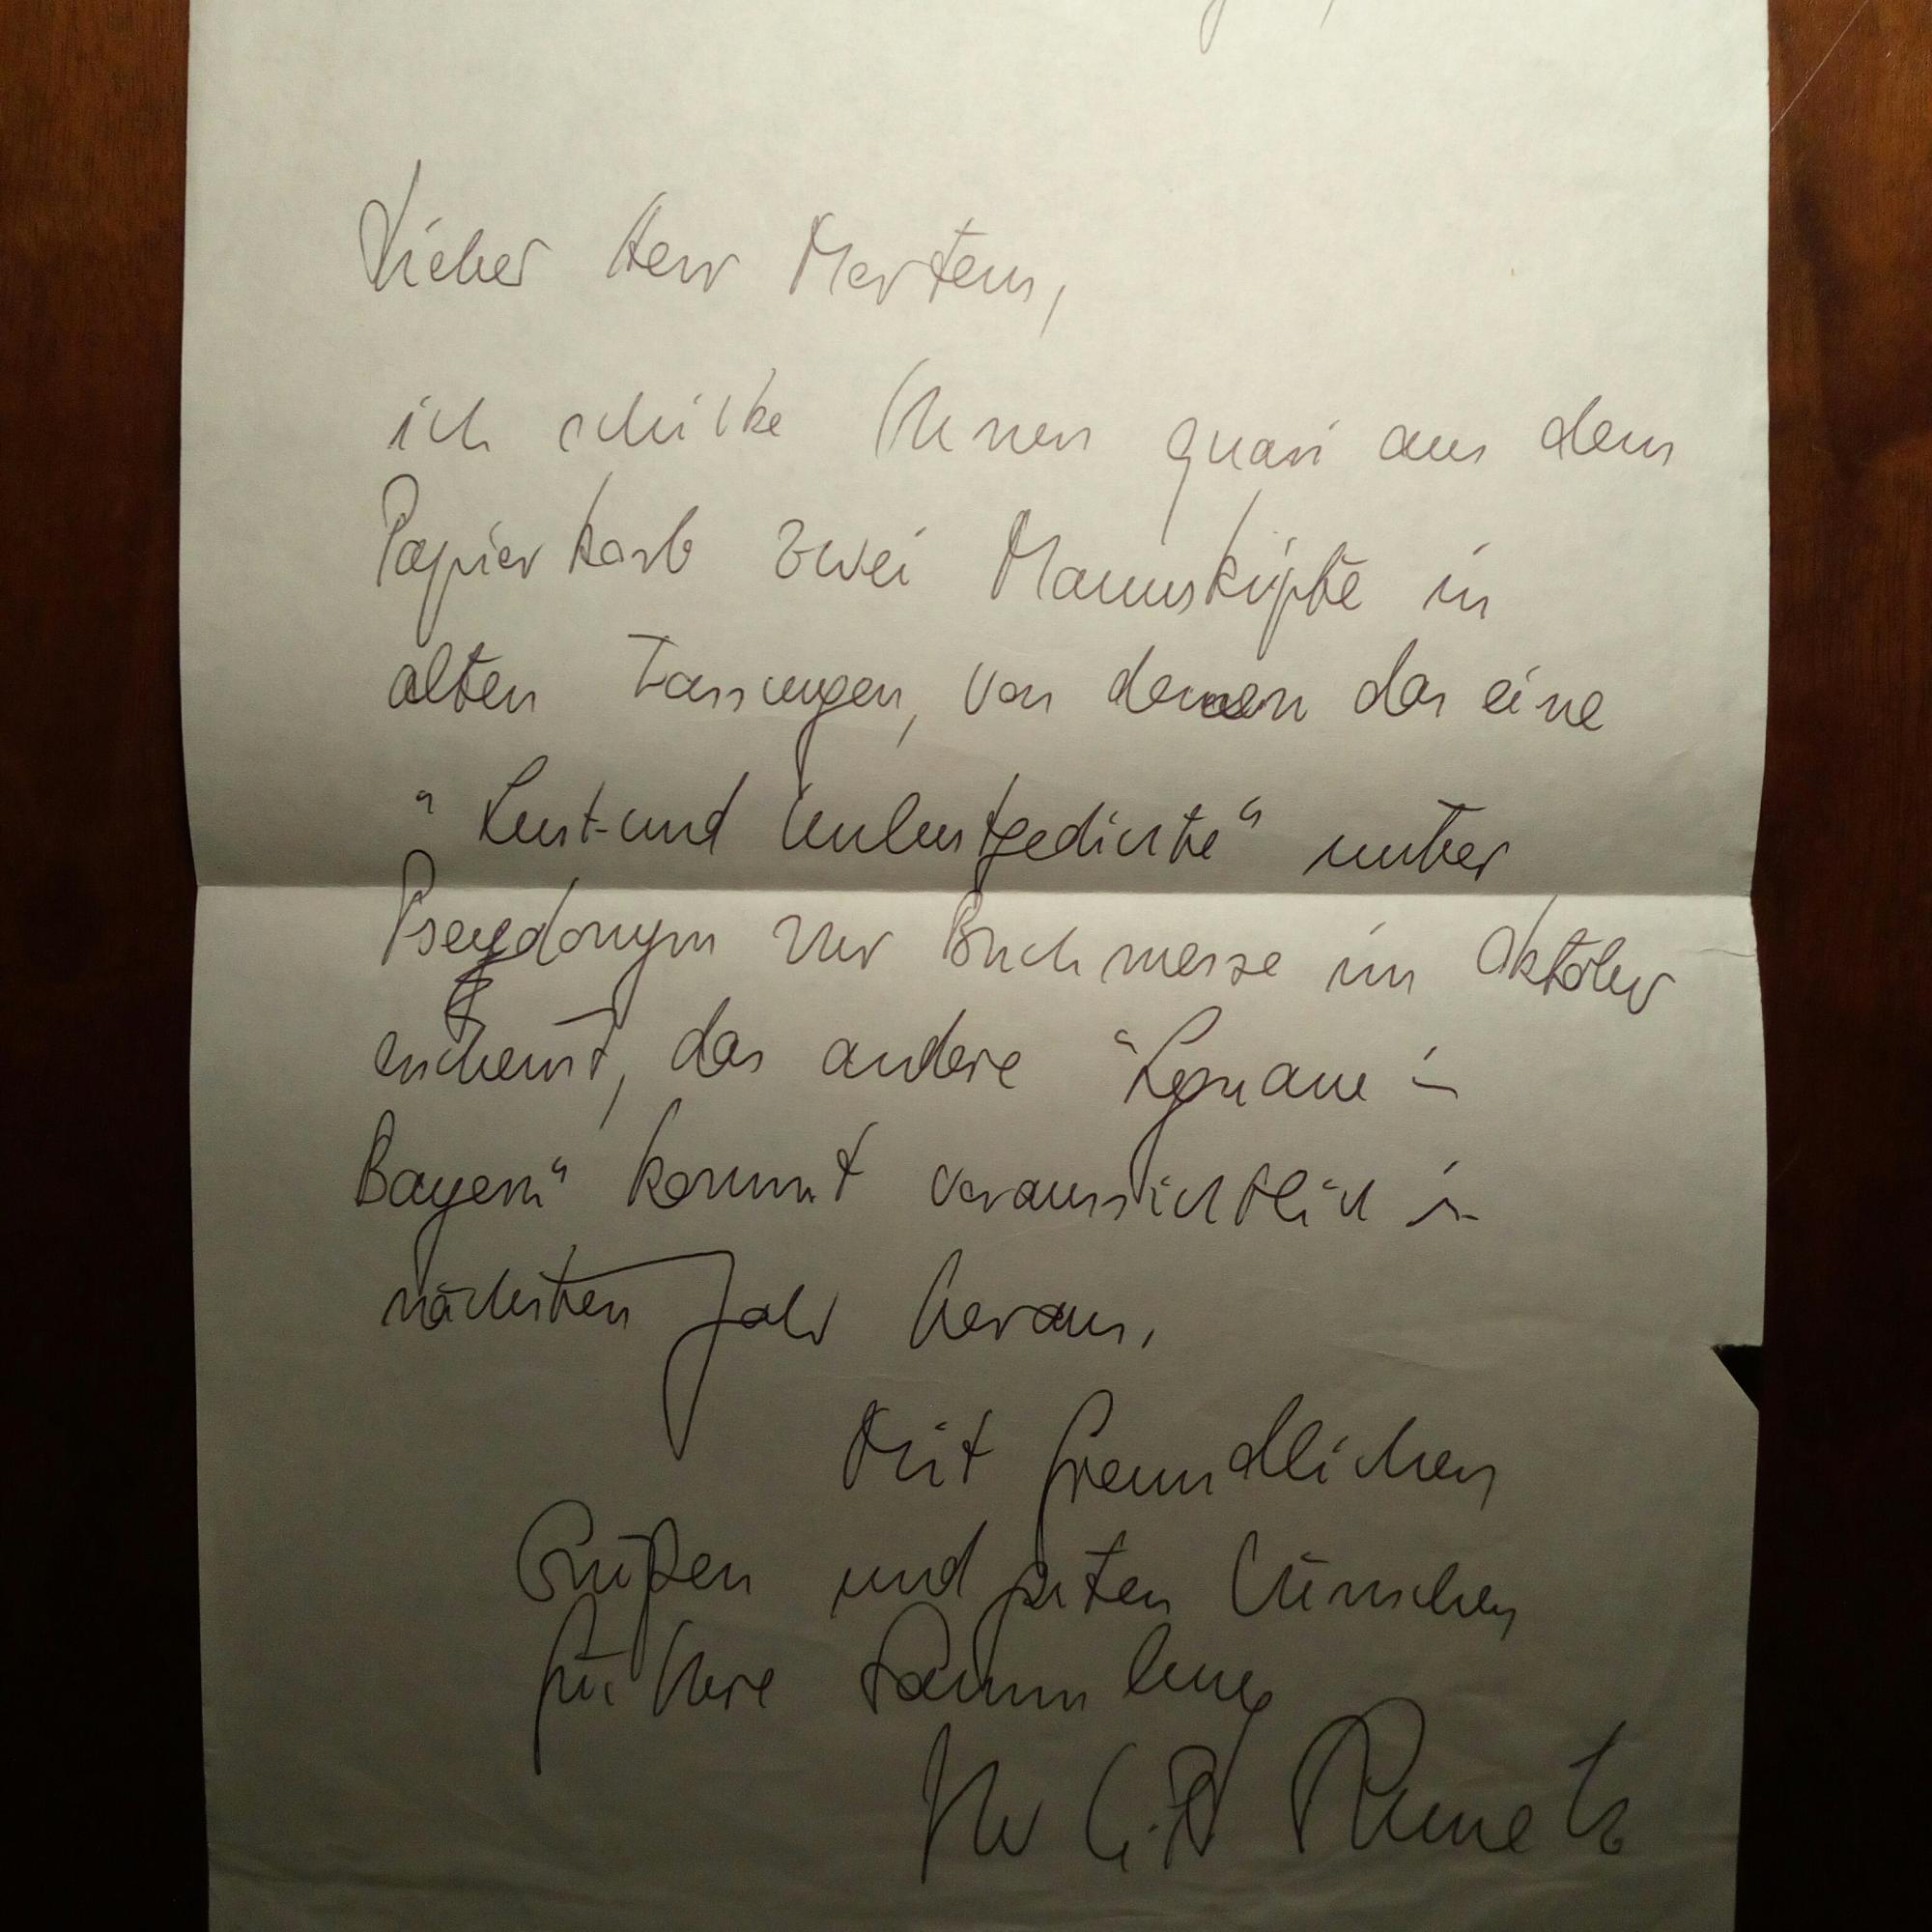 Lieber Herr Mertens,
ich schicke Ihnen quasi aus dem
Papierkorb zwei Manuskripte in
alten Fassungen, von denen das eine
"Lust- und Unlustgedichte" unter
Pseudonym zur Buchmesse im Oktober
erscheint, das andere "Leguane in
Bayern" kommt voraussichtlich im
nächsten Jahr heraus.
Mit freundlichen
Grüßen und guten Wünschen
für Ihre Sammlung
Ihr